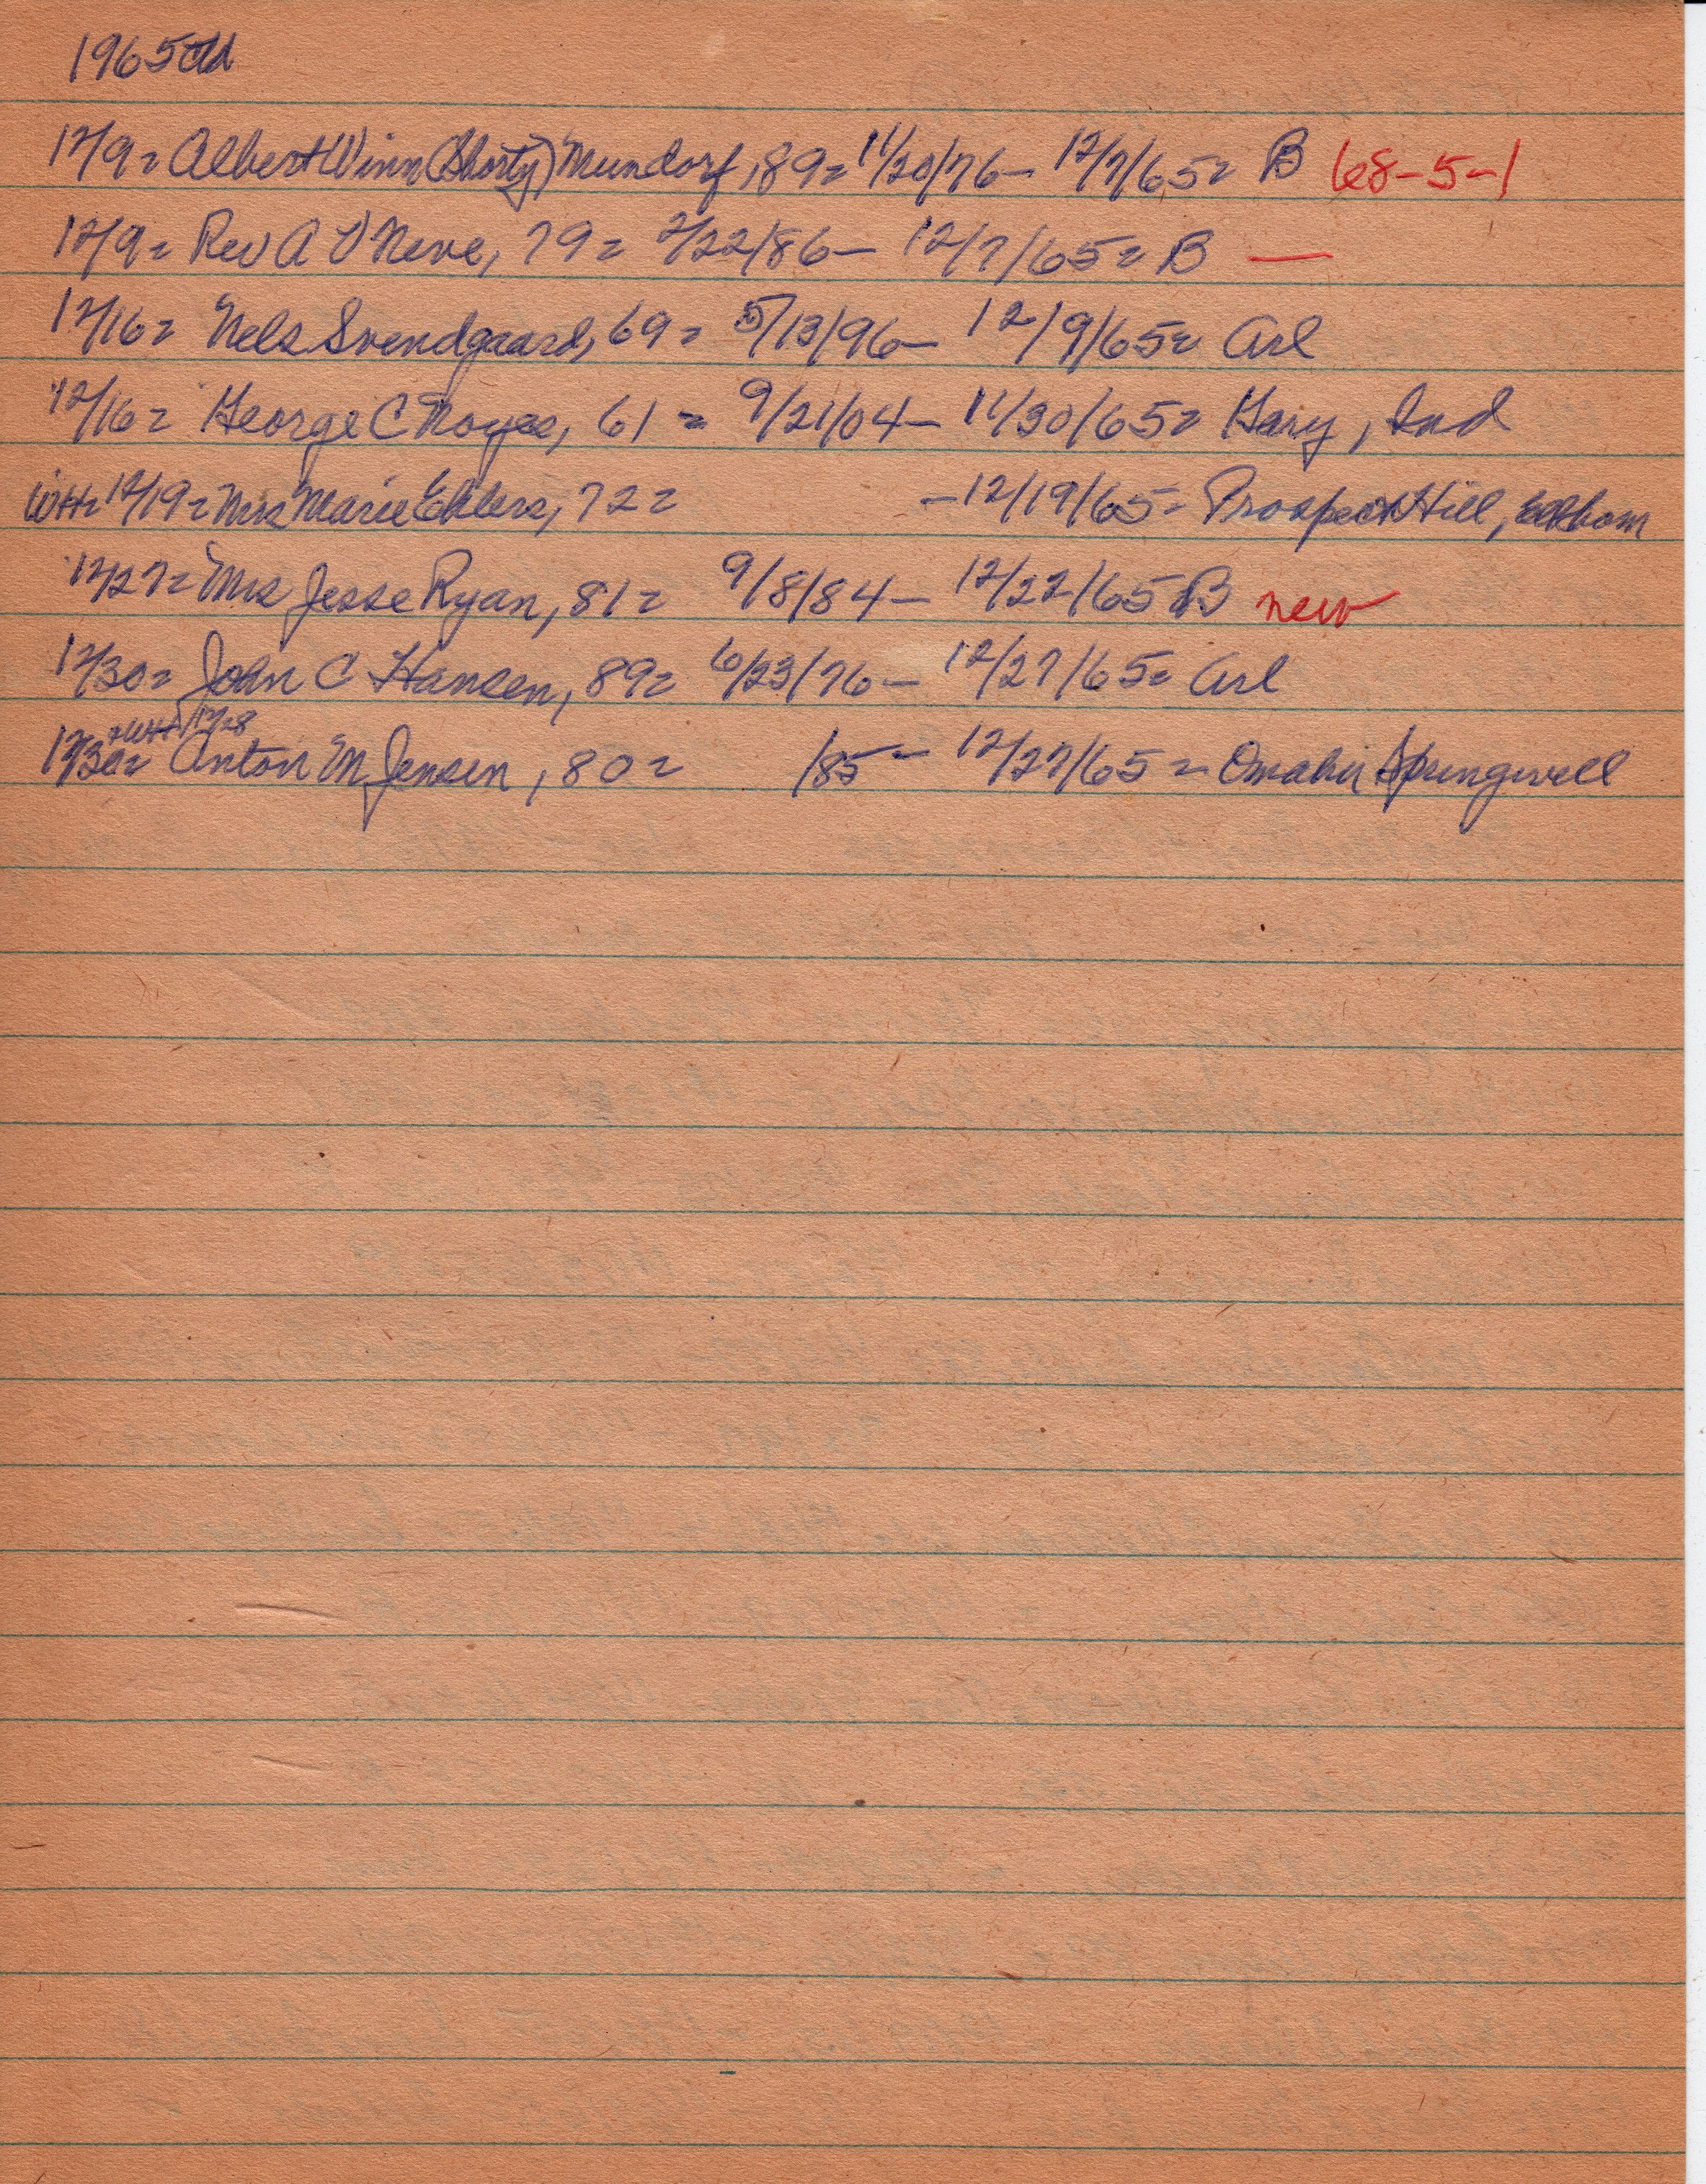 1965
12/9= Albert Winn (Shorty) Mundorf, 89= 11/20/76- 12/7/65= B 68-5-1
12/9= Rev A V Neve, 79= 2/22/86- 12/7/65= B —
12/16= Nels Svendgaard, 69= 5/13/96- 12/9/65= Arl
12/16= George C Noyes, 61= 9/21/04- 11/30/65= Gary, Ind
WH= 12/19= Mrs Marie Ehlers, 72= -12/19/65= Prospect Hill, Elkhorn
12/27= Mrs Jesse Ryan, 81= 9/8/84- 12/22/65 B new
12/30= John C Hansen, 89= 6/23/76- 12/27/65= Arl
+WH 12/28
12/30= Anton M Jensen, 80= /85- 12/27/65= Omaha Springwell